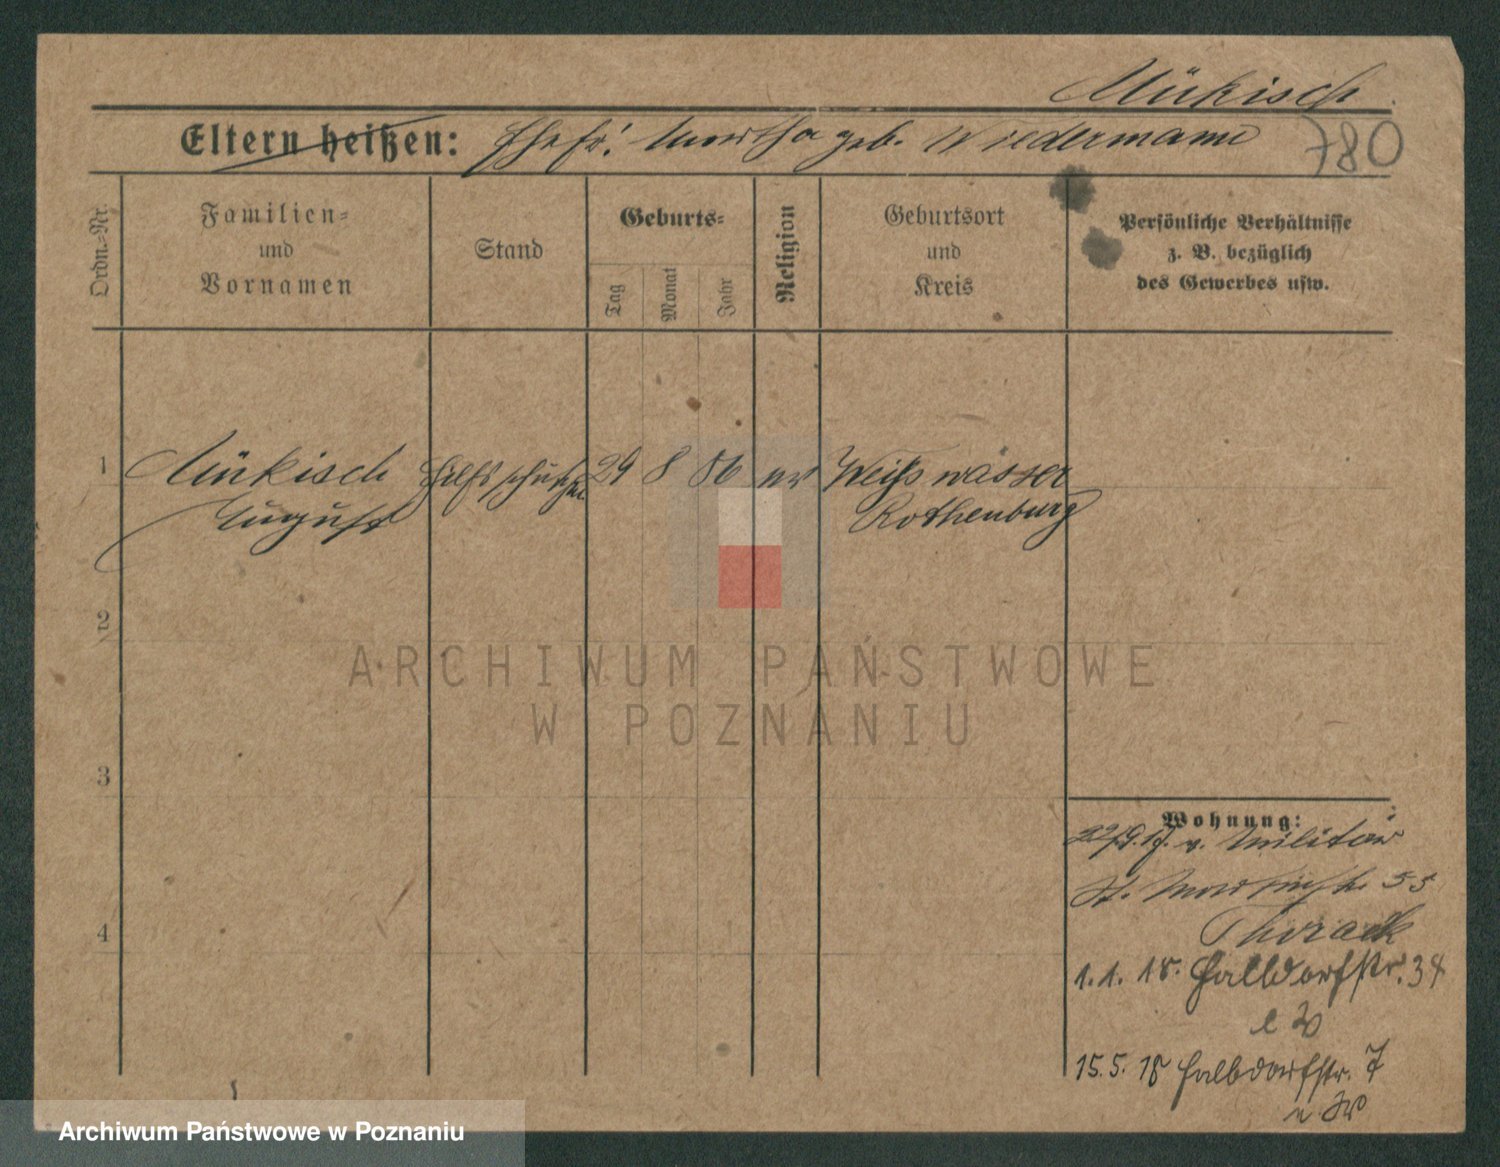 Mükisch
Eltern heißen: Ehefr. Martha geb. Wiedermann
780
Ordn.-Nr.
Familien-
und
Vornamen
Stand
Geburts-
Tag
Monat
Jahr
Religion
Geburtsort
und
Kreis
Persönliche Verhältnisse
z. B. bezüglich
des Gewerbes usw.
1 Mükisch 29 8 86 ev Weißwasser
August Rothenburg
2
3
4
Wohnung:
22/9.17. v. Militär
St. Martinstr. 55
1.1.18. Halbdorfstr. 34
15.5.18 Halbdorfstr. 7
ARCHIWUM PAŃSTWOWE
W POZNANIU
Archiwum Państwowe w Poznaniu